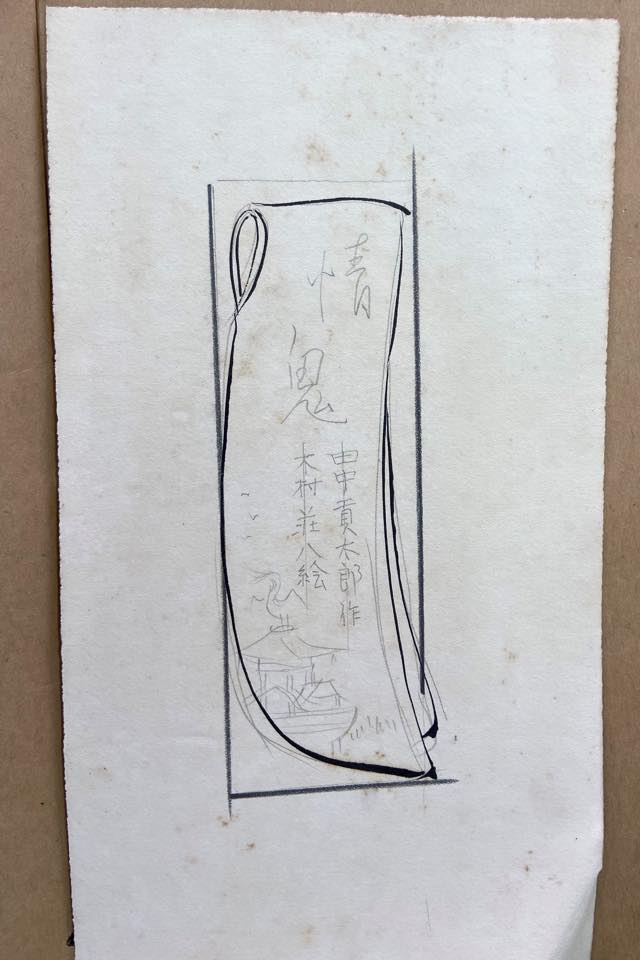 情鬼
田中貢太郎作
木村荘八絵